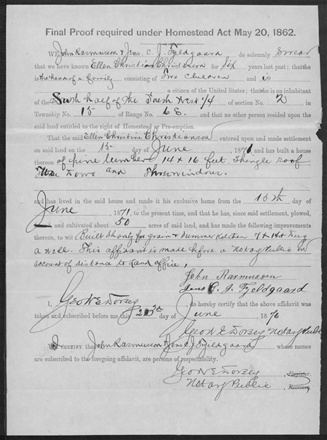 Final Proof required under Homestead Act May 20, 1862.
We John Rasmussen & Jens C. J. Fjeldgaard do solemnly Swear
that we have known Ellen Christina Christensen for Six years last past; that
is the head of a family consisting of Two Children and is
a citizen of the United States; that is an inhabitant
of the South half of the North West 1/4 of section No. 2 in
Township No. 15 of Range No. 6 E. and that no other person resided upon the
said land entitled to the right of Homestead or Pre-emption.
That the said Ellen Christina Christensen entered upon and made settlement
on said land on the 15 day of June 1871 and has built a house
of pine lumber 14 x 16 feet shingle roof
Two Doors and Three windows
and has lived in the said house and made it his exclusive home from the 15th day of
June 1871, to the present time, and that he has, since said settlement, plowed,
and cultivated about 50 acres of said land, and has made the following improvements
thereon, to wit: Built Shanty for grain & Summer Kitchen
a well. This affidavit is made before a Notary Public on
account of distance to Land Office,
John Rasmussen
Jens C. J. Fjeldgaard
I, Geo. N. E. Dorsey do hereby certify that the above affidavit was
taken and subscribed before me this day of June 1876
Notary Public
I certify that John Rasmussen & Jens C. J. Fjeldgaard whose names
are subscribed to the foregoing affidavit, are persons of respectability.
Geo. N. E. Dorsey
Notary Public